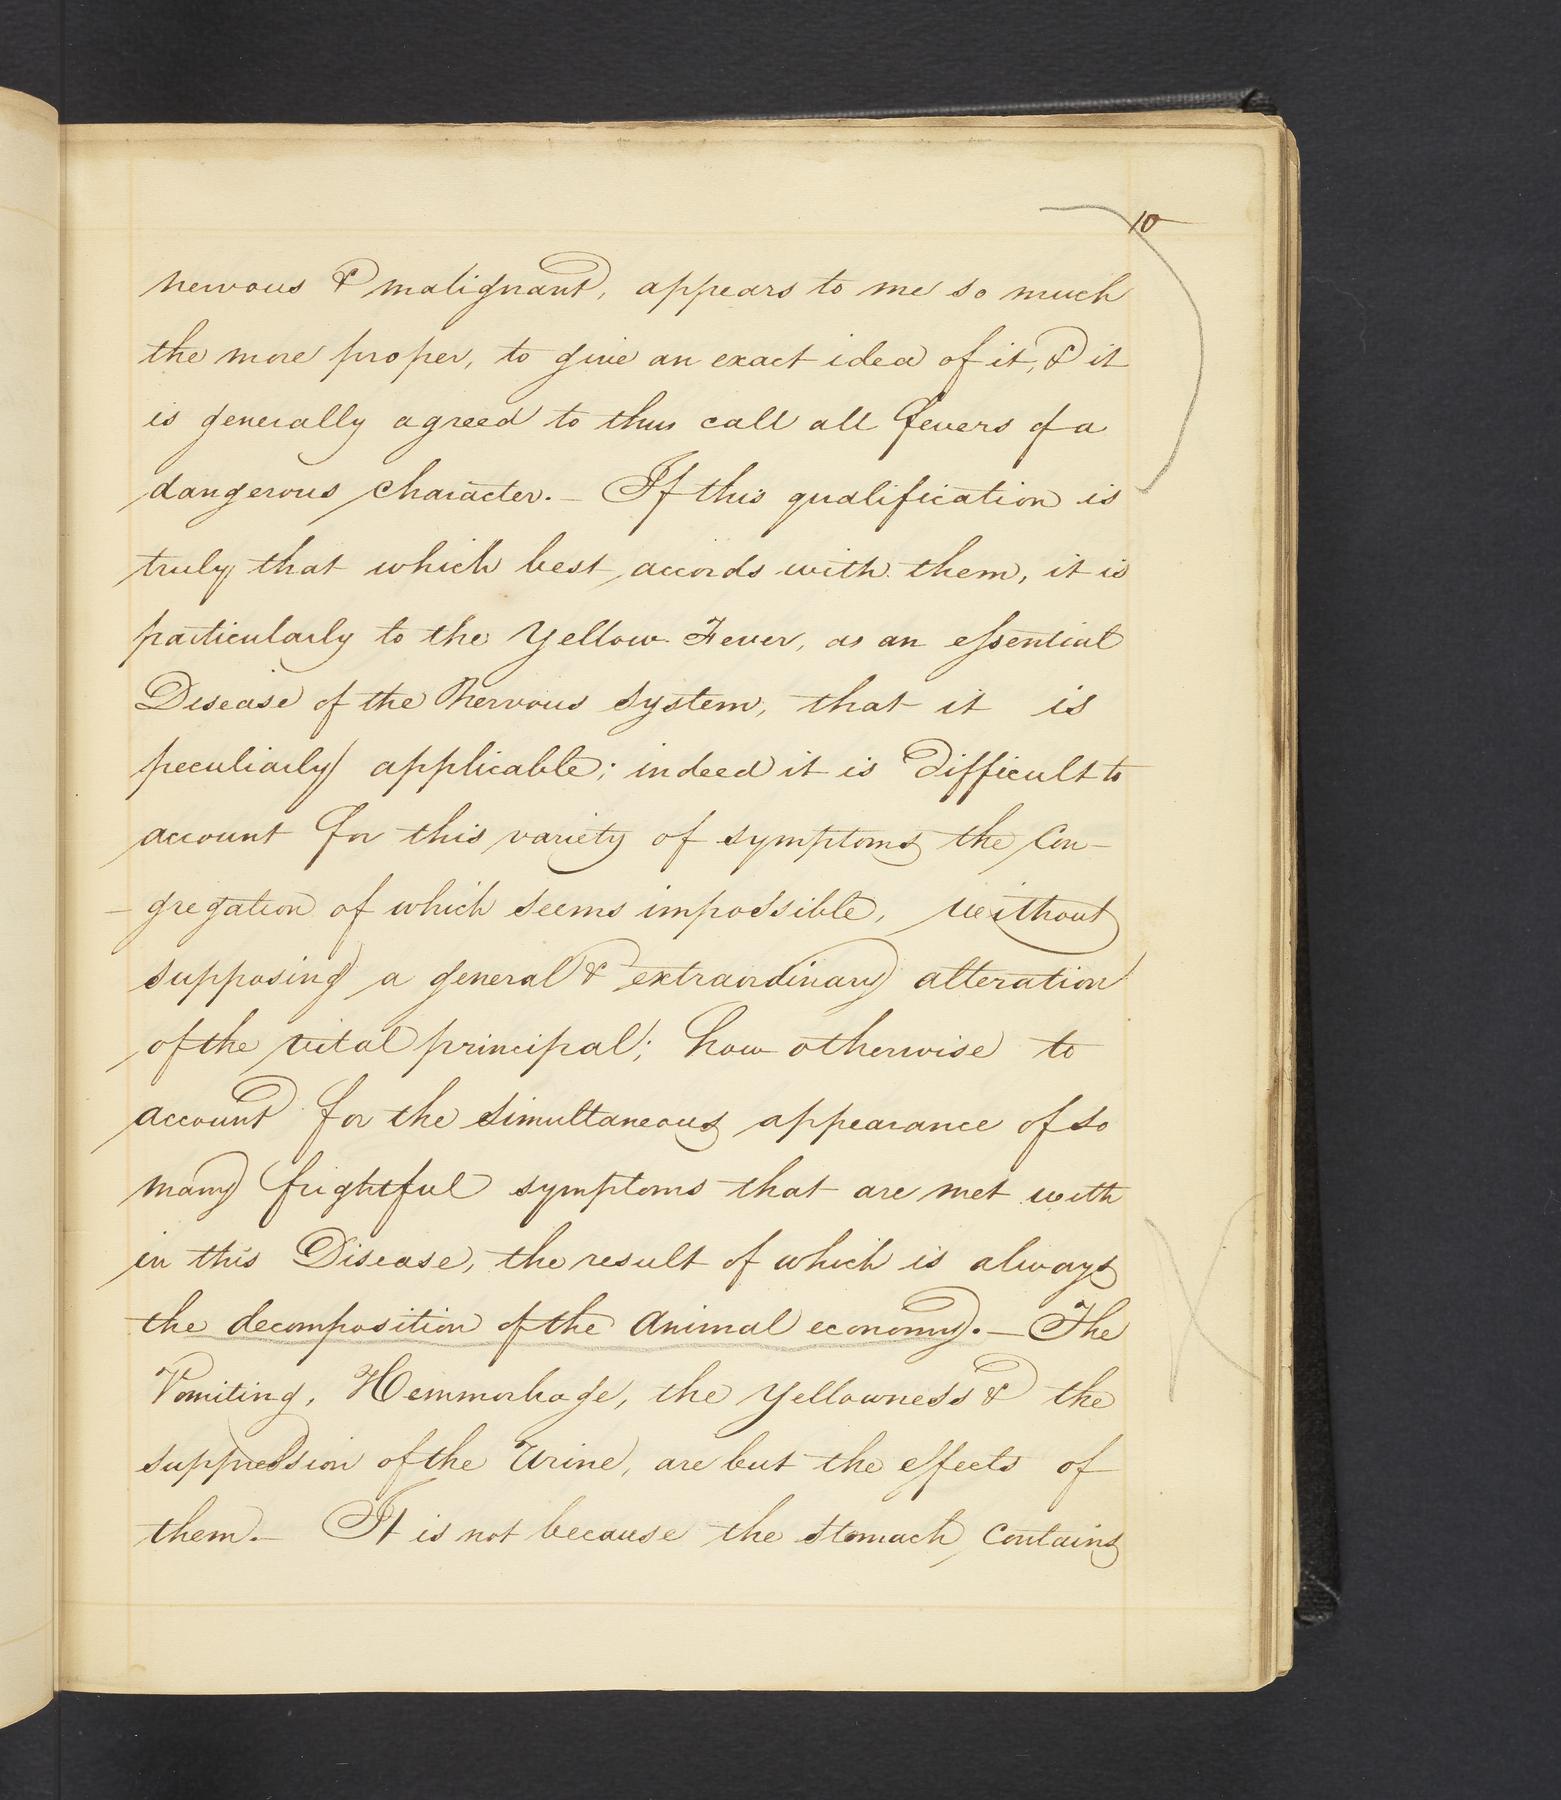 10
nervous & malignant, appears to me so much
the more proper, to give an exact idea of it, & it
is generally agreed to thus call all fevers of a
dangerous character. – If this qualification is
truly that which best accords with them, it is
particularly to the Yellow Fever, as an essential
Disease of the Nervous system, that it is
peculiarly applicable; indeed it is difficult to
account for this variety of symptoms the Con-
-gregation of which seems impossible, without
supposing a general & extraordinary alteration
of the vital principal; how otherwise to
account for the simultaneous appearance of so
many frightful symptoms that are met with
in this Disease, the result of which is always
the decomposition of the Animal economy. – The
Vomiting, Hemmorhage, the Yellowness & the
suppression of the Urine, are but the effects of
them. – It is not because the stomach contains